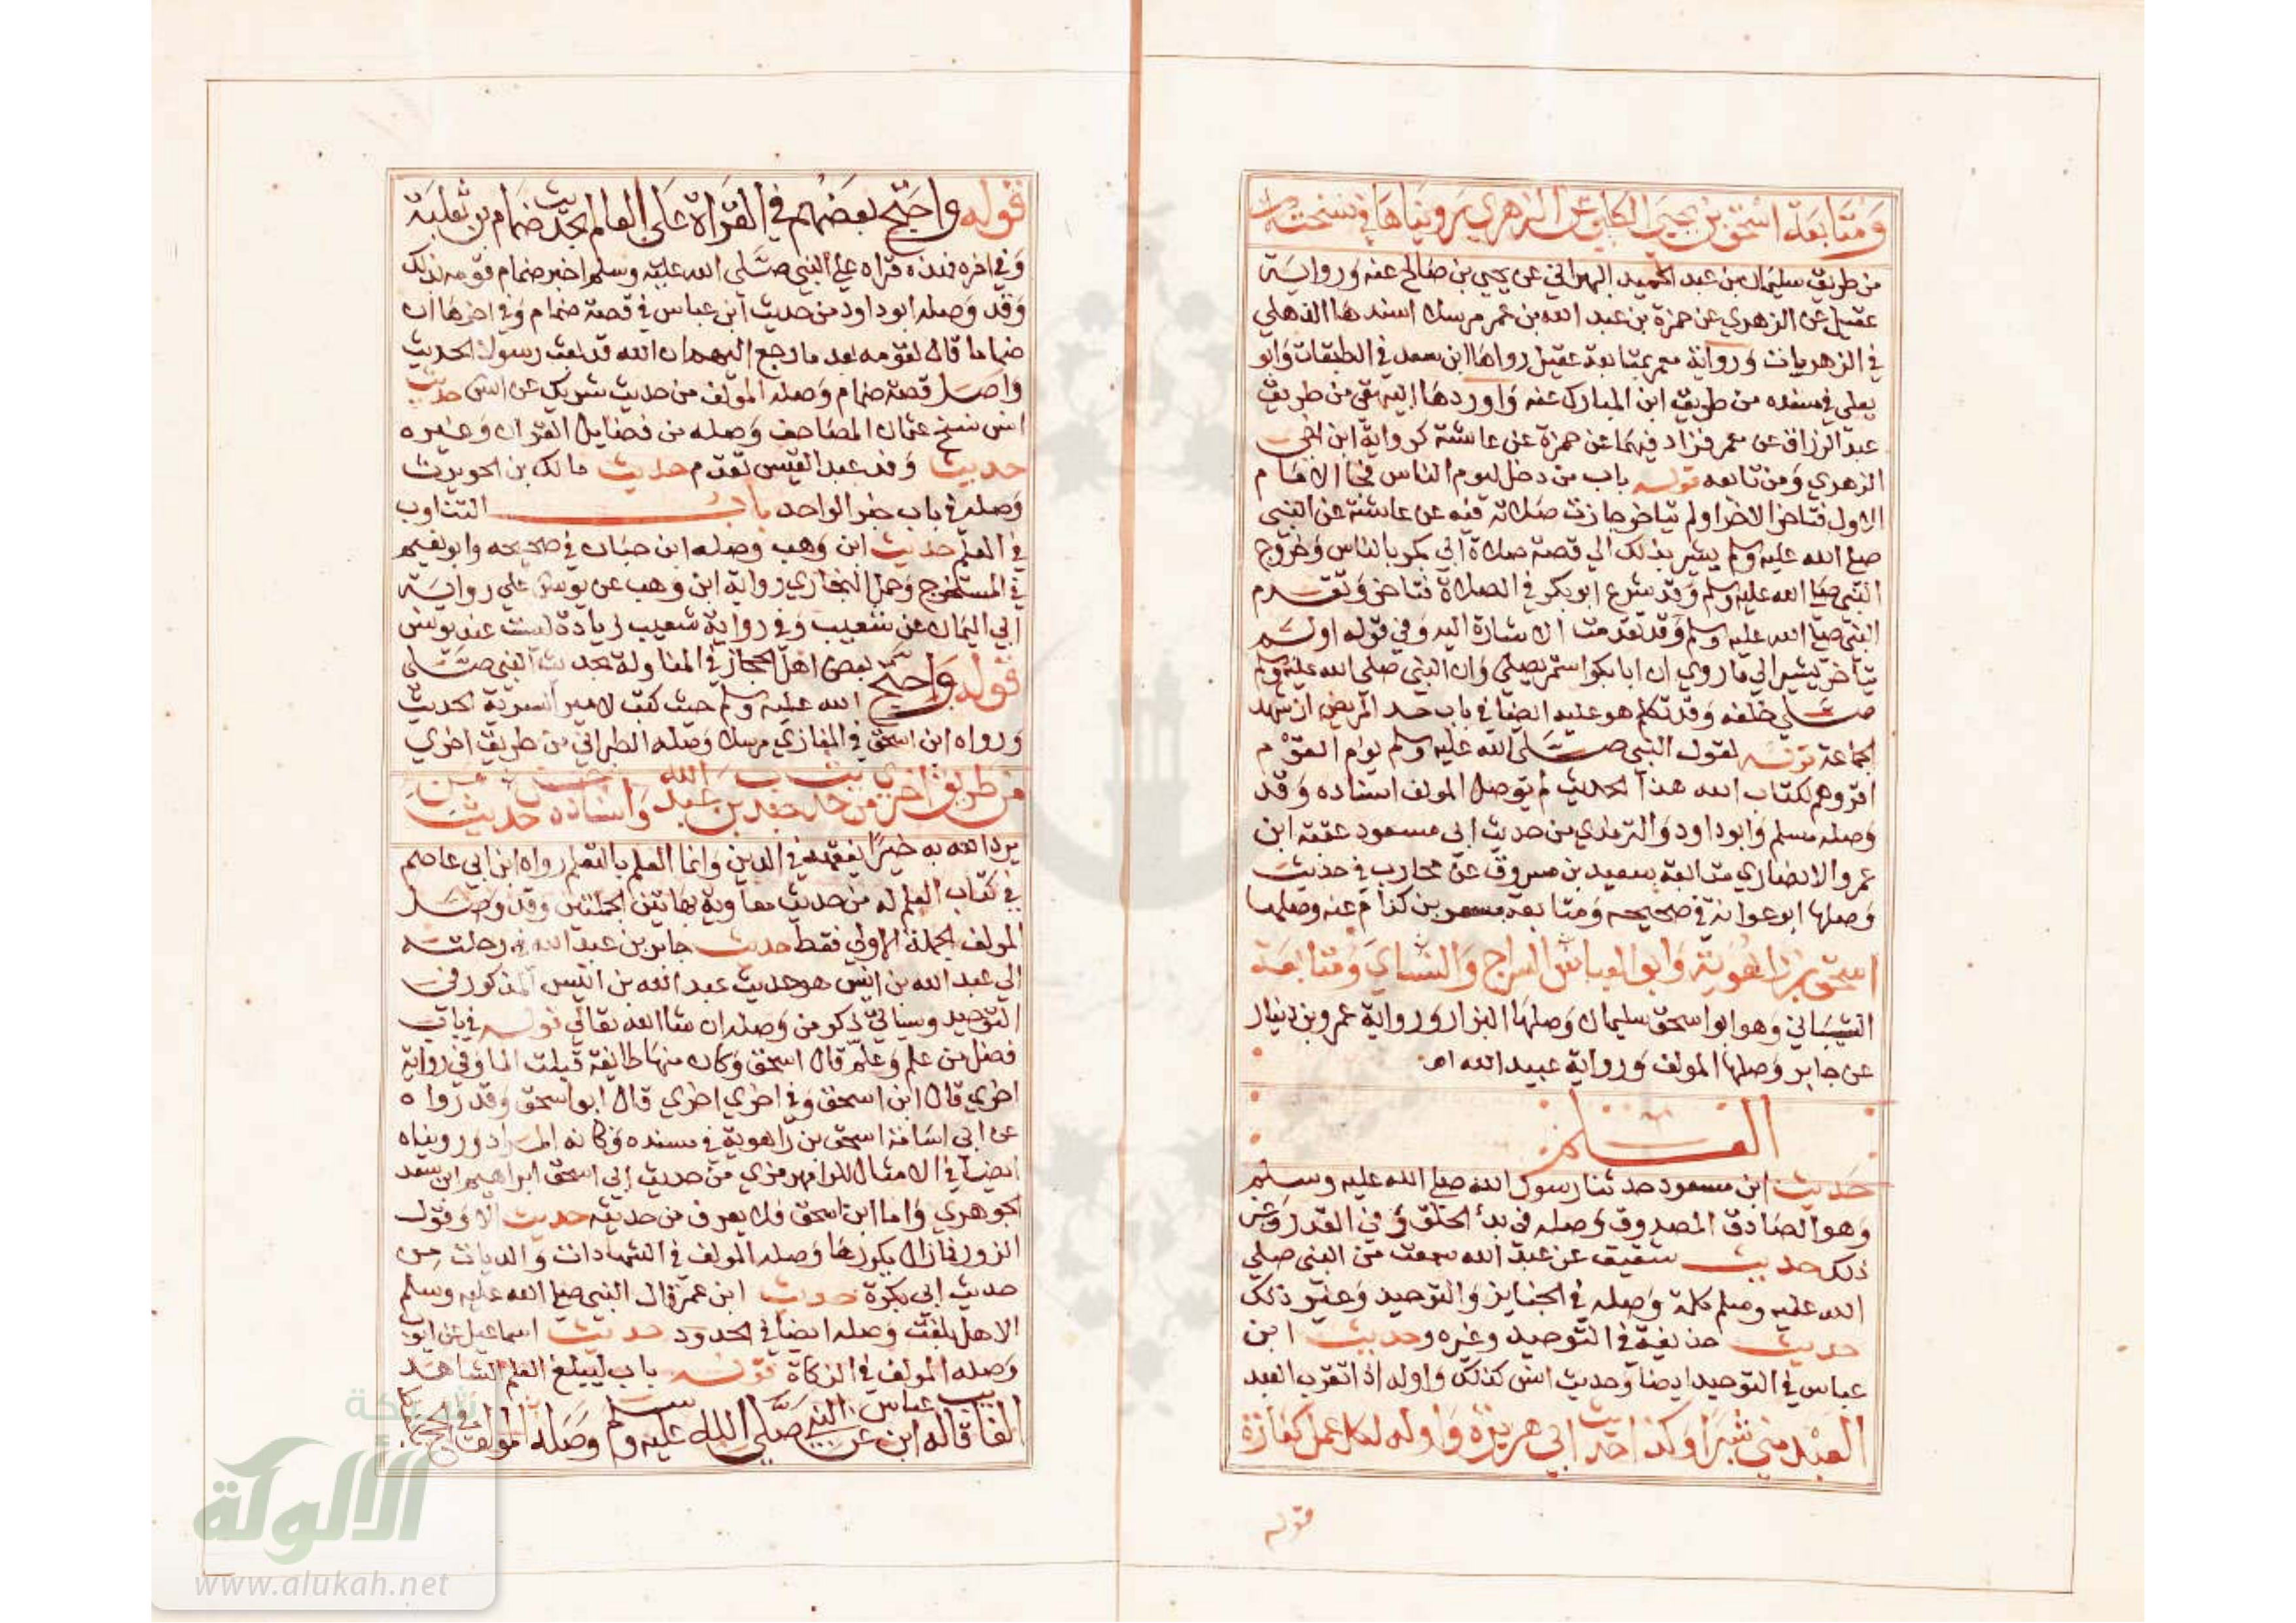 ومتابعة اسحق بن يحيى الكلبي عن الزهري رويناها في نسخته
من طريق سليمان بن عبد الحميد البهراني عن يحيى بن صالح عنه ورواية
عقيل عن الزهري عن حمزة بن عبد الله بن عمر مرسلا اسندها الذهلي
في الزهريات ورواية معمر بمتابعة عقيل رواها ابن سعد في الطبقات وابو
يعلى في مسنده من طريق ابن المبارك عنه واوردها البيهقي من طريق
عبد الرزاق عن معمر فزاد فيهما عن حمزة عن عائشة كرواية ابن اخي
الزهري ومن تابعه قوله باب من دخل ليوم الناس فجا الامام
الاول فتاخر الاخر اولم يتاخر جازت صلاته فيه عن عائشة عن النبي
صلى الله عليه وسلم يشير بذلك الي قصة صلاة ابي بكر بالناس وخروج
النبي صلى الله عليه وسلم وقد شرع ابو بكر في الصلاة فتاخر وتقدم
النبي صلى الله عليه وسلم وقد تقدمت الاشارة اليه وفي قوله اولم
يتاخر يشير الي ما روي ان ابا بكر استمر يصلي وان النبي صلى الله عليه وسلم
صلى خلفه وقد تكلم هو عليه ايضا في باب حد المريض ان يشهد
الجماعة قوله لقول النبي صلى الله عليه وسلم يوم القوم
اقروهم لكتاب الله هذا الحديث لم يوصل المولف اسناده وقد
وصله مسلم وابو داود والترمذي من حديث ابي مسعود عقبة ابن
عمرو الانصاري متابعة سعيد بن مسروق عن محارب في حديث
وصلها ابو عوانة في صحيحه ومتابعة مسعر بن كدام عنه وصلها
اسحق بن راهوية وابو العباس السراج والنساي ومتابعة
الشيباني وهو ابو اسحق سليمان وصلها البزار ورواية عمرو بن دينار
عن جابر وصلها المولف ورواية عبيد الله اه
العلم
حديث ابن مسعود حدثنا رسول الله صلى الله عليه وسلم
وهو الصادق المصدوق وصله في بدأ الخلق وفي القدر وغير
ذلك حديث شقيق عن عبد الله سمعت من النبي صلي
الله عليه وسلم كلمة وصله في الجنايز والتوحيد وغير ذلك
حديث حذيفة في التوحيد وغيره وحديث ابن
عباس في التوحيد ايضا وحديث انس كذلك واوله اذا تقرب العبد
العبد مني شبرا وكذا حديث ابي هريرة واوله لكل عمل كفارة
قوله
قوله واحتج بعضهم في القراة على العالم بحديث ضمام بن ثعلبة
وفي اخره فهذه قراه على النبي صلى الله عليه وسلم اخبر ضمام قومه بذلك
وقد وصله ابو داود من حديث ابن عباس في قصة ضمام وفي اخرها ان
ضماما قال لقومه بعد ما رجع اليهم ان الله قد بعث رسولا الحديث
واصل قصة ضمام وصله المولف من حديث شريك عن انس حديث
انس نسخ عثمان المصاحف وصله من فضايل القران وغيره
حديث وفد عبد القيس تقدم حديث مالك بن الحويرث
وصله في باب خبر الواحد باب التناوب
في العلم حديث ابن وهب وصله ابن حبان في صحيحه وابو نعيم
في المستخرج وحمل البخاري رواية ابن وهب عن يونس علي رواية
ابي اليمان عن شعيب وفي رواية شعيب زيادة ليست عند يونس
قوله واحتج بعض اهل الحجاز في المناولة بحديث النبي صلى
الله عليه وسلم حيث كتب لامير السرية الحديث
ورواه ابن اسحق في المغازي مرسلا وصله الطبراني من طريق اخري
من طريق اخري من حديث جندب بن عبد الله واسناده حسن حديث من
يرد الله به خيرا يفقهه في الدين وانما العلم بالتعلم رواه ابن ابي عاصم
في كتاب العلم له من حديث معاوية بهاتين الجملتين وقد وصل
المولف الجملة الاولي فقط حديث جابر بن عبد الله في رحلته
الي عبد الله بن انيس هو حديث عبد الله بن انيس المذكور في
التوحيد وسياتي ذكر من وصله ان شا الله تعالي قوله في باب
فضل من علم وعلم قال اسحق وكان منها طايفة قيلت الما وفي رواية
اخري قال ابن اسحق وفي اخري اخري قال ابو اسحق وقد رواه
عن ابي اسامة اسحق بن راهوية في مسنده وكانه المراد ورويناه
ايضا في الامثال للرامهرمزي من حديث ابي اسحق ابراهيم ابن سعد
الجوهري واما ابن اسحق فلا يعرف من حديثه حديث الا وقول
الزور فما زال يكررها وصله المولف في الشهادات والديات من
حديث ابي بكرة حديث ابن عمر قال النبي صلى الله عليه وسلم
الا هل بلغت وصله ايضا في الحدود حديث اسماعيل عن ايوب
وصله المولف في الزكاة قوله باب ليبلغ العلم الشاهد
الغا قاله ابن عباس عن النبي صلى الله عليه وسلم وصله المولف في الحج
شبكة
الألوكة
www.alukah.net